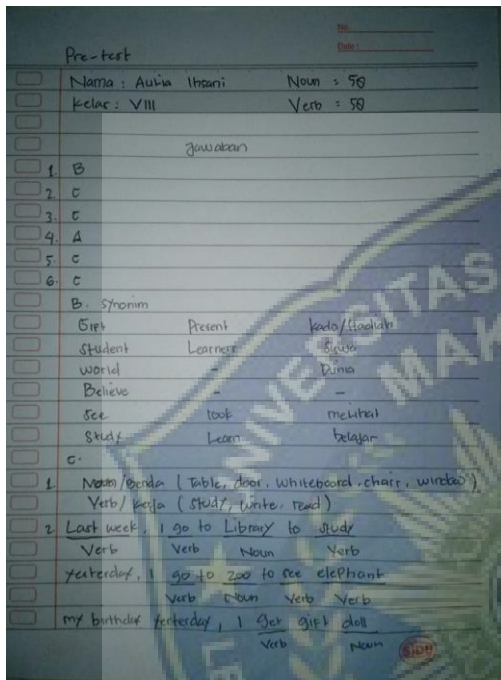 No.
Date:
Pre-test
Nama : Aulia Ihsani Noun = 50
Kelas : VIII Verb = 50
Jawaban
1. B
2. C
3. C
4. A
5. C
6. C
B. Synonim
Gift Present Kado/Hadiah
Student Learners Siswa
World - Dunia
Believe - -
See look melihat
Study Learn belajar
C.
1. Noun/Benda (Table, door, whiteboard, chair, window)
Verb/Kerja (Study, write, read)
2. Last week, I go to Library to study
Verb Verb Noun Verb
Yesterday, I go to zoo to see elephant
Verb Noun Verb Verb
my birthday yesterday, I get gift doll
Verb Noun
SIDU
UNIVERSITAS